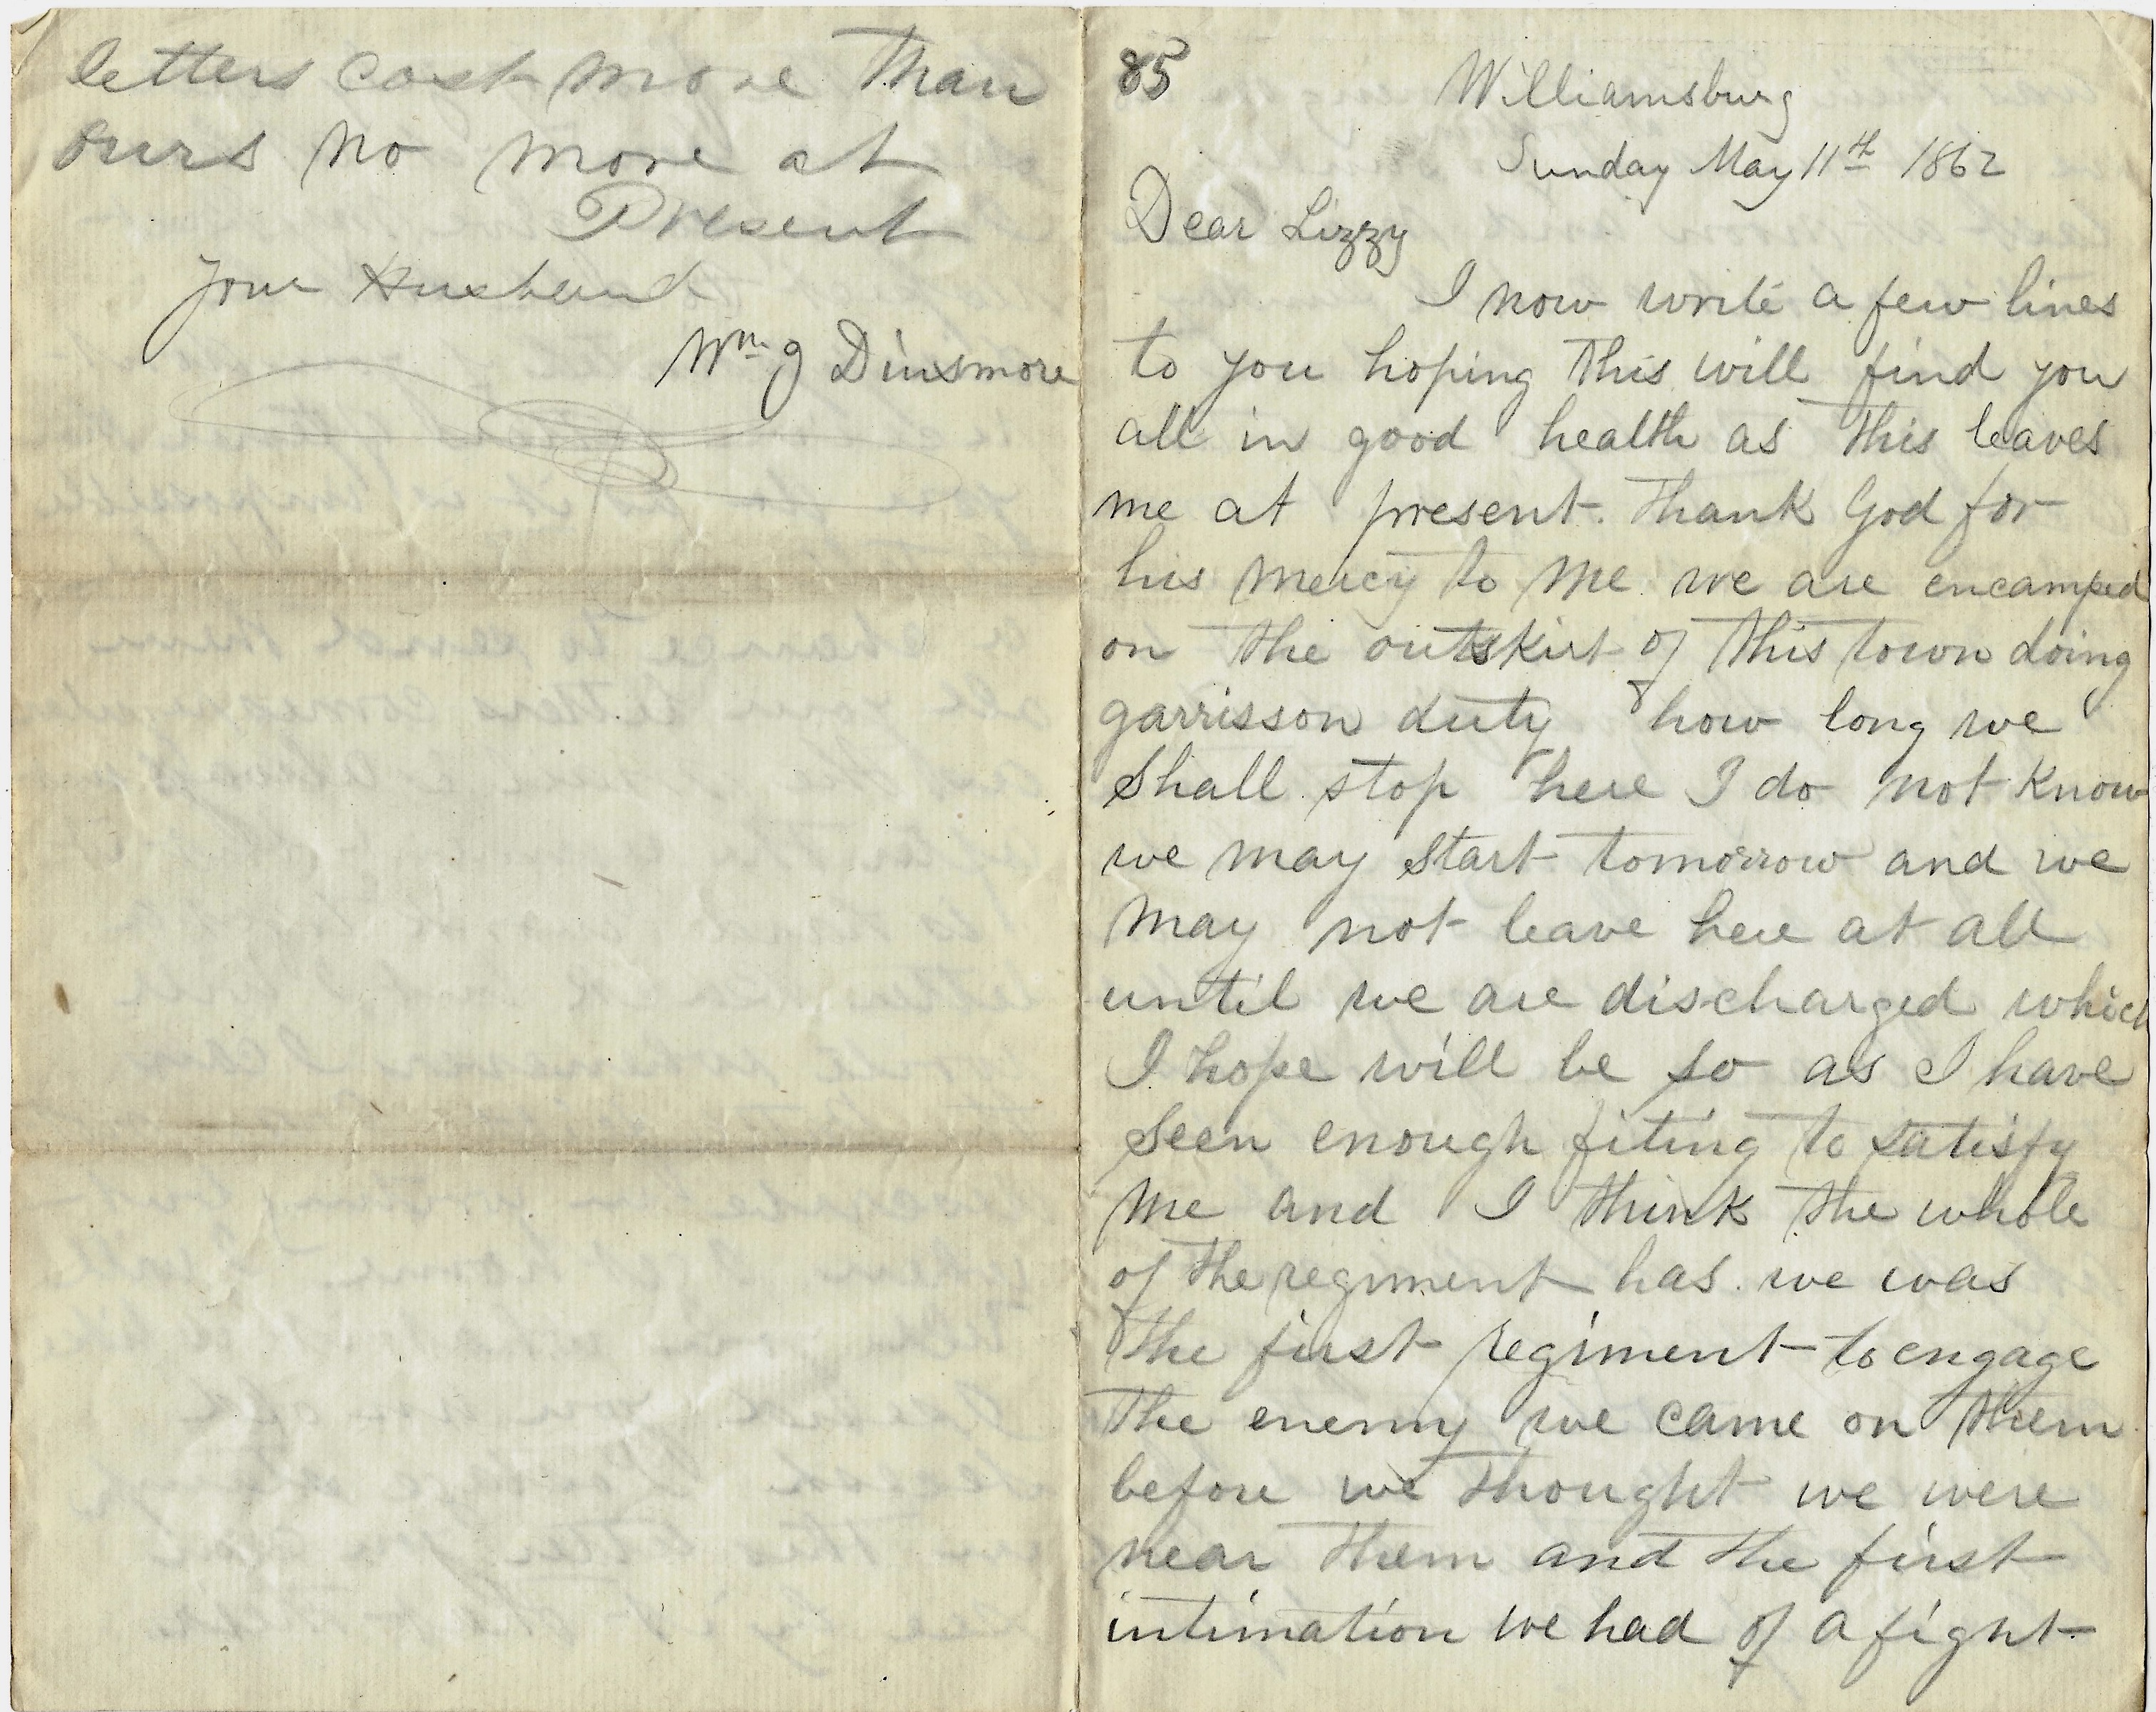 letters cost more than
ours no more at
Present
your Husband
Wm J Dinsmore
85
Williamsburg
Sunday May 11th 1862
Dear Lizzy
I now write a few lines
to you hoping this will find you
all in good health as this leaves
me at present. thank God for
his mercy to me. we are encamped
on the outskirt of this town doing
garrisson duty how long we
shall stop here I do not know
we may start tomorrow and we
may not leave here at all
until we are discharged which
I hope will be so as I have
seen enough fiting to satisfy
me and I think the whole
of the regiment has. we was
the first regiment to engage
the enemy we came on them
before we thought we were
near them and the first
intimation we had of a fight